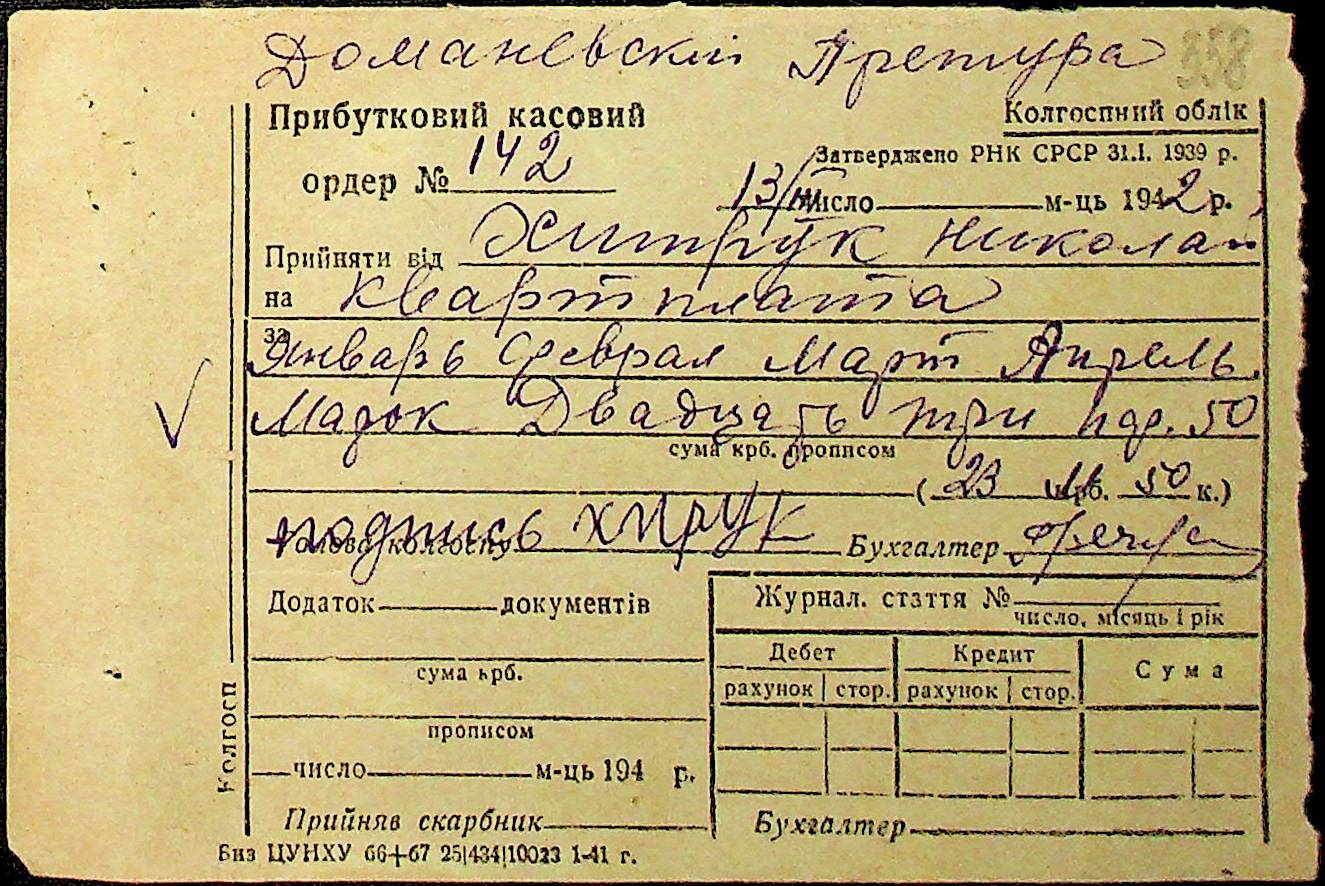 Доманевский Претура 358
Прибутковий касовий
Колгоспний облік
ордер № 142
Затверджено РНК СРСР 31.I. 1939 р.
13/III число м-ць 1942 р.
Прийняти від Хитрук Николай
на Квартплата
за Январь Феврал Март Апрель
Марок Двадцать три пф. 50
сума крб. прописом
(23 М крб. 50 к.)
Голова колгоспу подпись хирук Бухгалтер
Додаток документів
Журнал. стаття №
число, місяць і рік
Дебет Кредит Сума
рахунок стор. рахунок стор.
сума крб.
прописом
число м-ць 194 р.
Прийняв скарбник
Бухгалтер
Колгосп
Виз ЦУНХУ 66+67 25|434|10023 1-41 г.